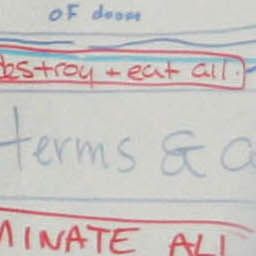 OF doom
destroy + eat all.
terms & c
MINATE ALL